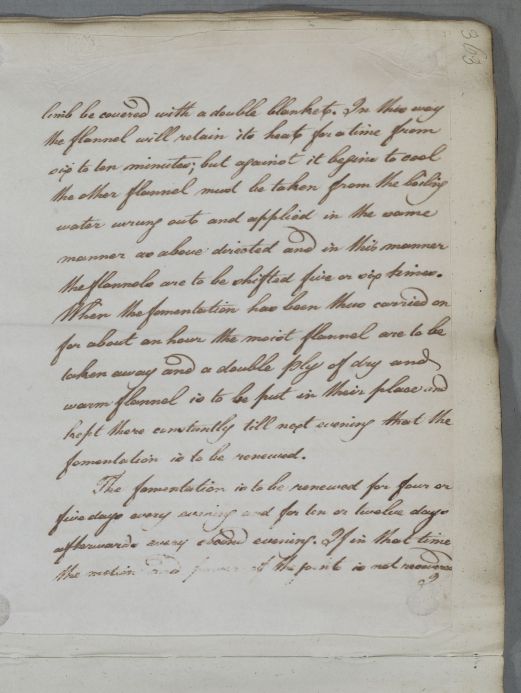 363
limb be covered with a double blanket. In this way
the flannel will retain its heat for a time from
six to ten minutes; but against it begins to cool
the other flannel must be taken from the boiling
water wrung out and applied in the same
manner as above directed and in this manner
the flannels are to be shifted five or six times.
When the fomentation has been thus carried on
for about an hour the moist flannel are to be
taken away and a double ply of dry and
warm flannel is to be put in their place and
kept there constantly till next evening that the
fomentation is to be renewed.
The fomentation is to be renewed for four or
five days every evening and for ten or twelve days
afterwards every second evening. If in that time
the motion and power of the joint is not recovered